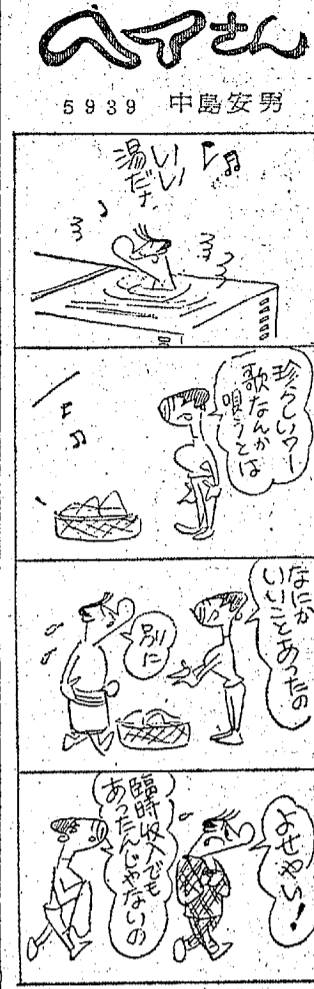 ヘイさん
5939 中島安男
いい
湯だナ
珍らしいワー
歌なんか
唄うとは
なにか
いいことあったの
別に
よせやい!
臨時収入でも
あったんじゃないの